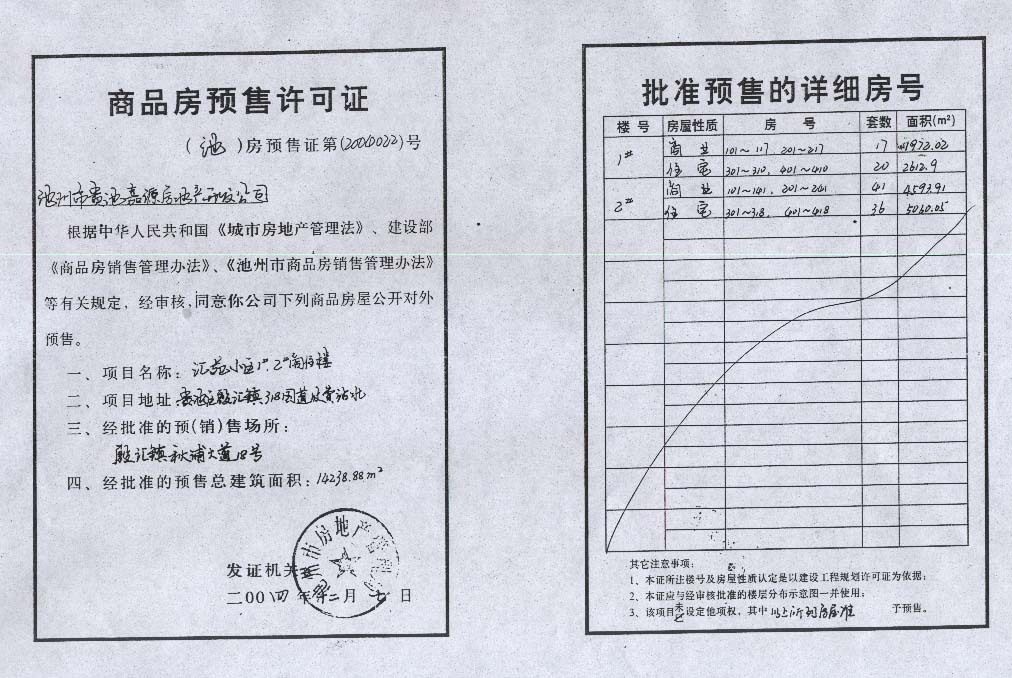 商品房预售许可证
(池)房预售证第(2004022)号
池州市贵池嘉源房地产开发公司
根据中华人民共和国《城市房地产管理法》、建设部
《商品房销售管理办法》、《池州市商品房销售管理办法》
等有关规定，经审核，同意你公司下列商品房屋公开对外
预售。
一、项目名称：汇苑小区1#.2#商住楼
二、项目地址：贵池区殷汇镇318国道
三、经批准的预(销)售场所：
殷汇镇秋浦大道18号
四、经批准的预售总建筑面积：14238.88m²
池州市房地产管理局
发证机关
二00四年十二月七日
批准预售的详细房号
楼号 房屋性质 房号 套数 面积(m²)
1# 商业 101～117.201～217 17 1972.02
住宅 301～310.401～410 20 2612.9
2# 商业 101～141.201～241 41 4593.91
住宅 301～318.401～418 36 5060.05
其它注意事项：
1、本证所注楼号及房屋性质认定是以建设工程规划许可证为依据；
2、本证应与经审核批准的楼层分布示意图一并使用；
3、该项目未设定他项权，其中以上所列房屋准予预售。